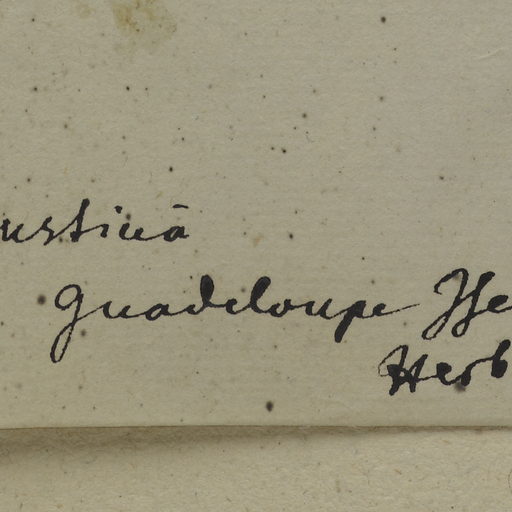 ustinā
Guadeloupe Hse
Herb